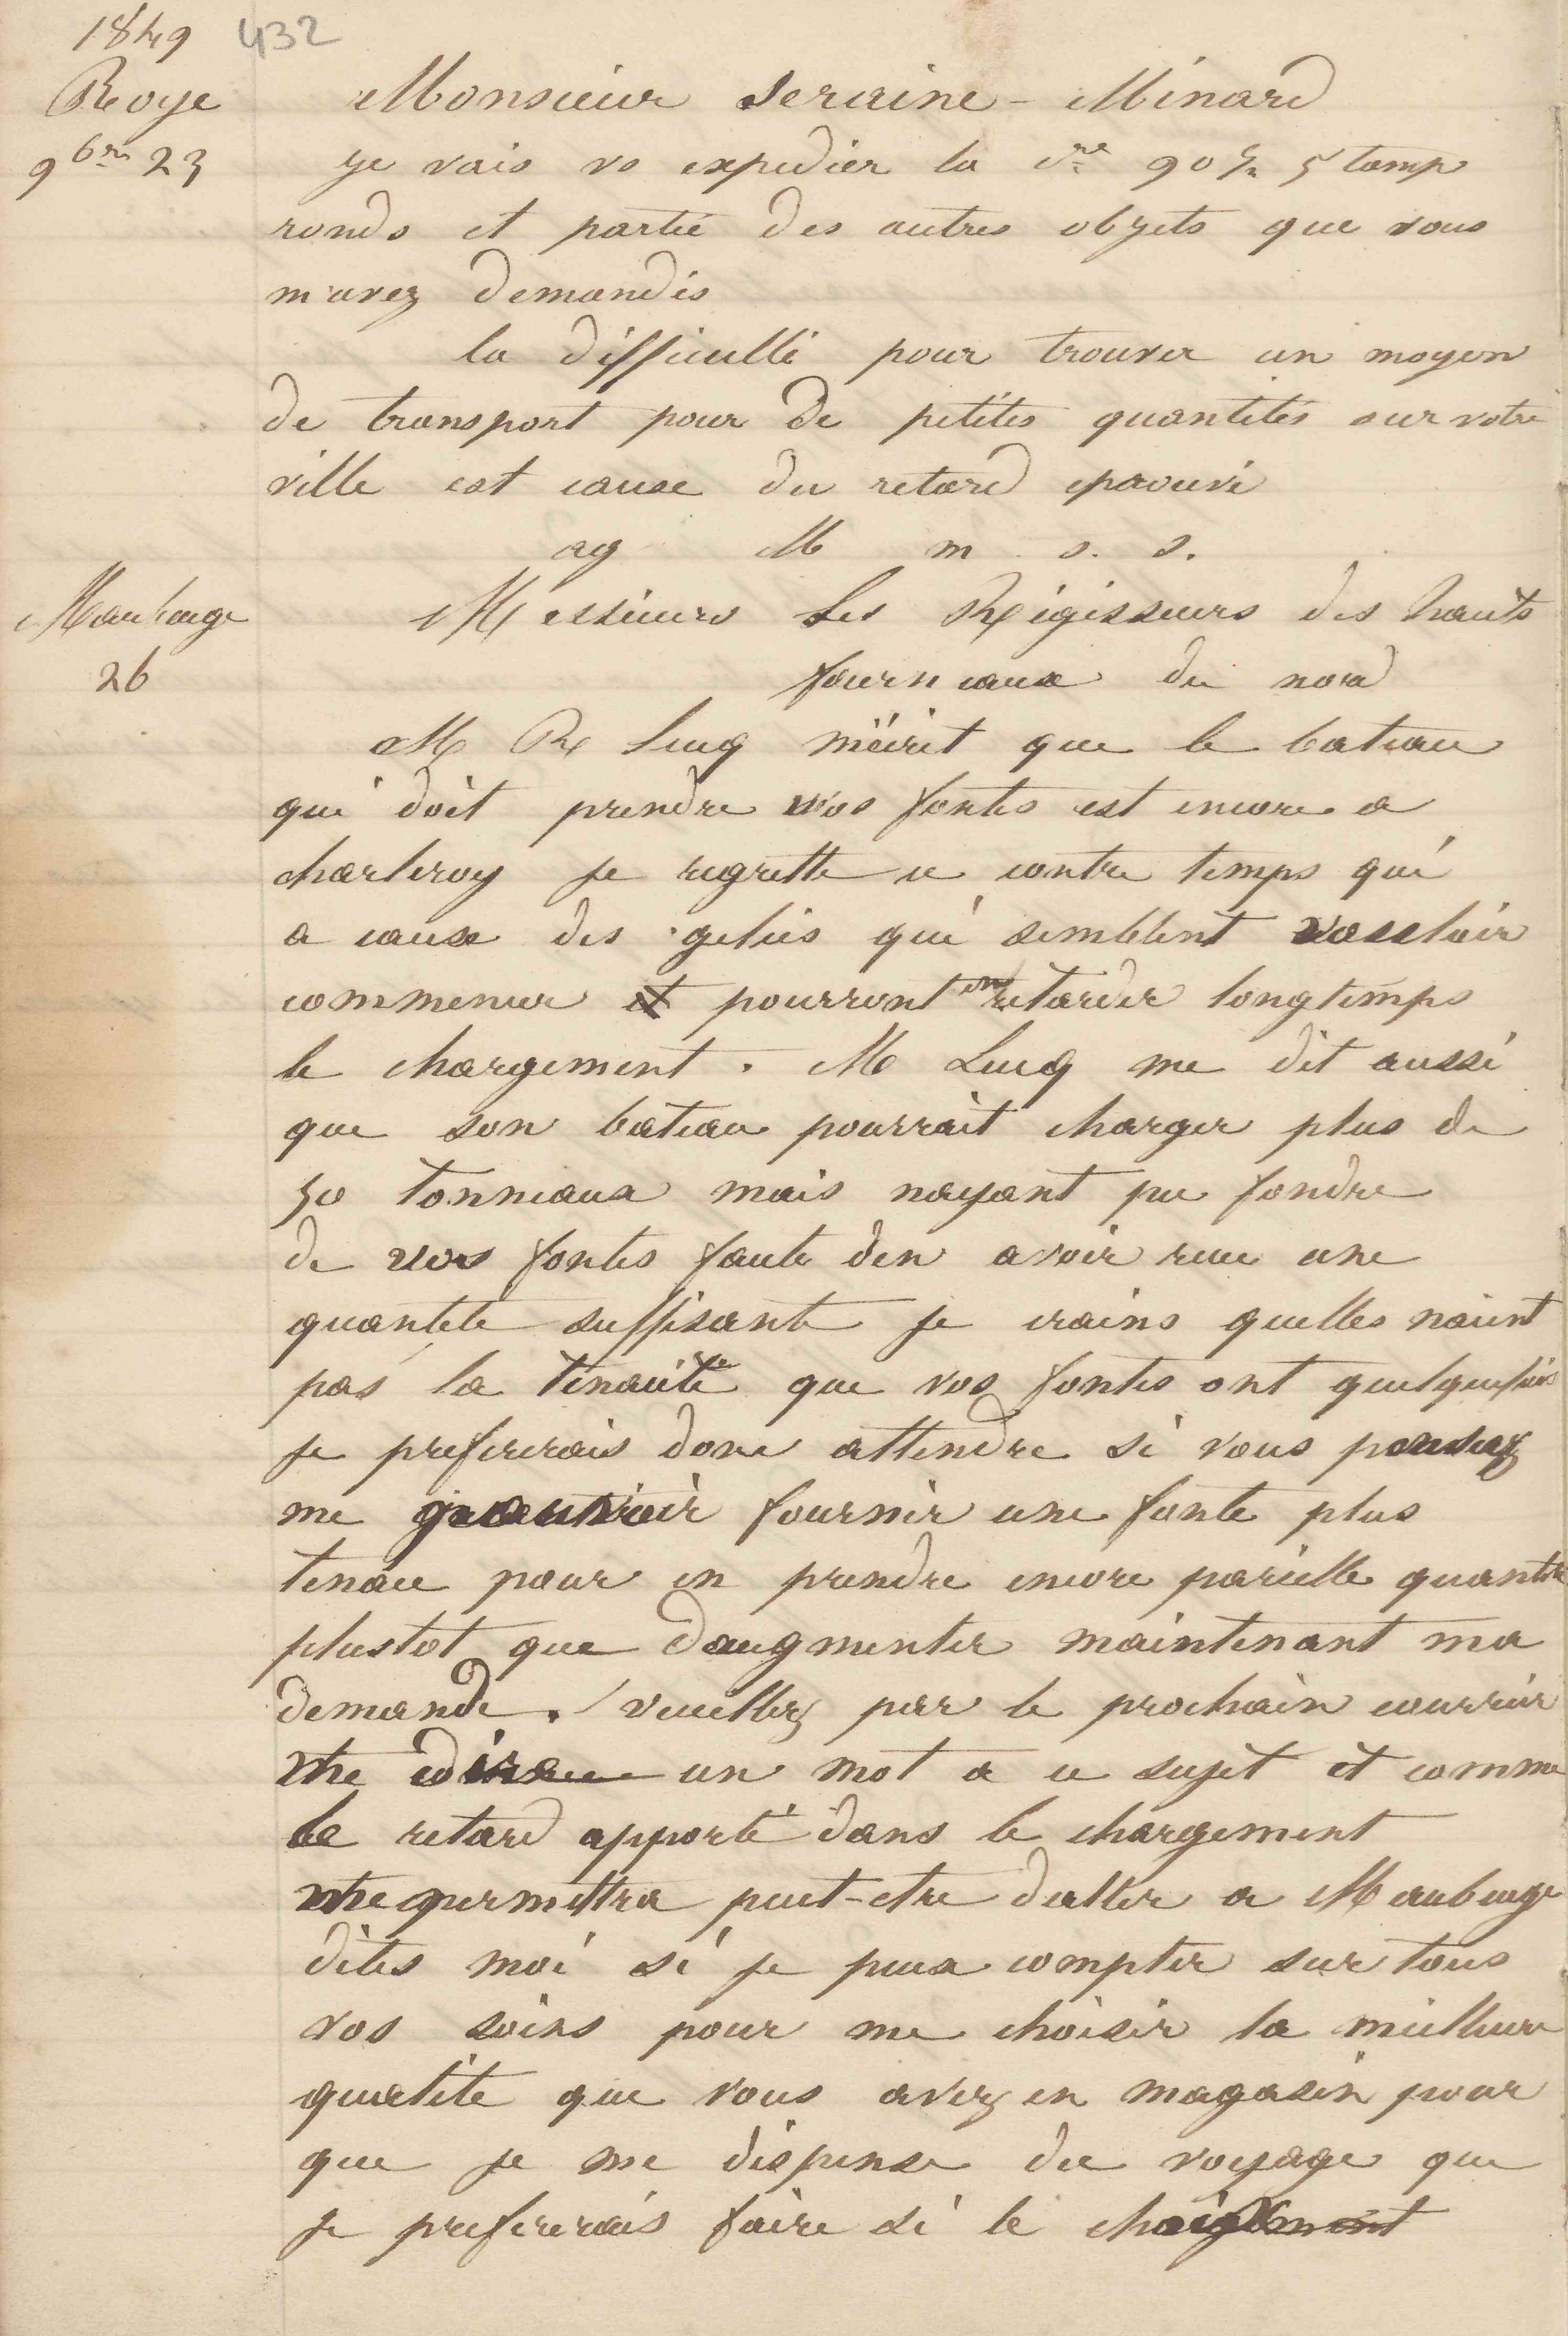 1849 432
Roye
9bre 23
Monsieur Seraine-Minard
je vais vs expedier la 90 5 tamp
ronds et partie des autres objets que vous
m'avez demandés
la difficulté pour trouver un moyen
de transport pour de petites quantités sur votre
ville est cause du retard eprouvé
ag M m s. s.
Maubeuge
26
Messieurs Les Régisseurs des hauts
fourneaux du nord
M R Lucq m'écrit que le bateau
qui doit prendre vos fontes est encore a
charleroy je regrette ce contre temps qui
a cause des gelées qui semblent vouloir
commencer et pourront en retarder longtemps
le chargement. M Lucq me dit aussi
que son bateau pourrait charger plus de
50 tonneaux mais nayant pu fondre
de vos fontes faute den avoir recu une
quantete suffisante je crains quelles naient
pas la ténacité que vos fontes ont quelquefois
je prefererais donc attendre si vous pensez
me pouvoir fournir une fonte plus
tenace pour en prendre encore pareille quantité
plustot que daugmenter maintenant ma
demande. veuillez par le prochain courrier
me dire un mot a ce sujet et comme
le retard apporté dans le chargement
me permettra peut-etre daller a Maubeuge
dites moi si je peux compter sur tous
vos soins pour me choisir la meilleure
qualité que vous avez en magasin pour
que je me dispense du voyage que
je prefererais faire si le choix